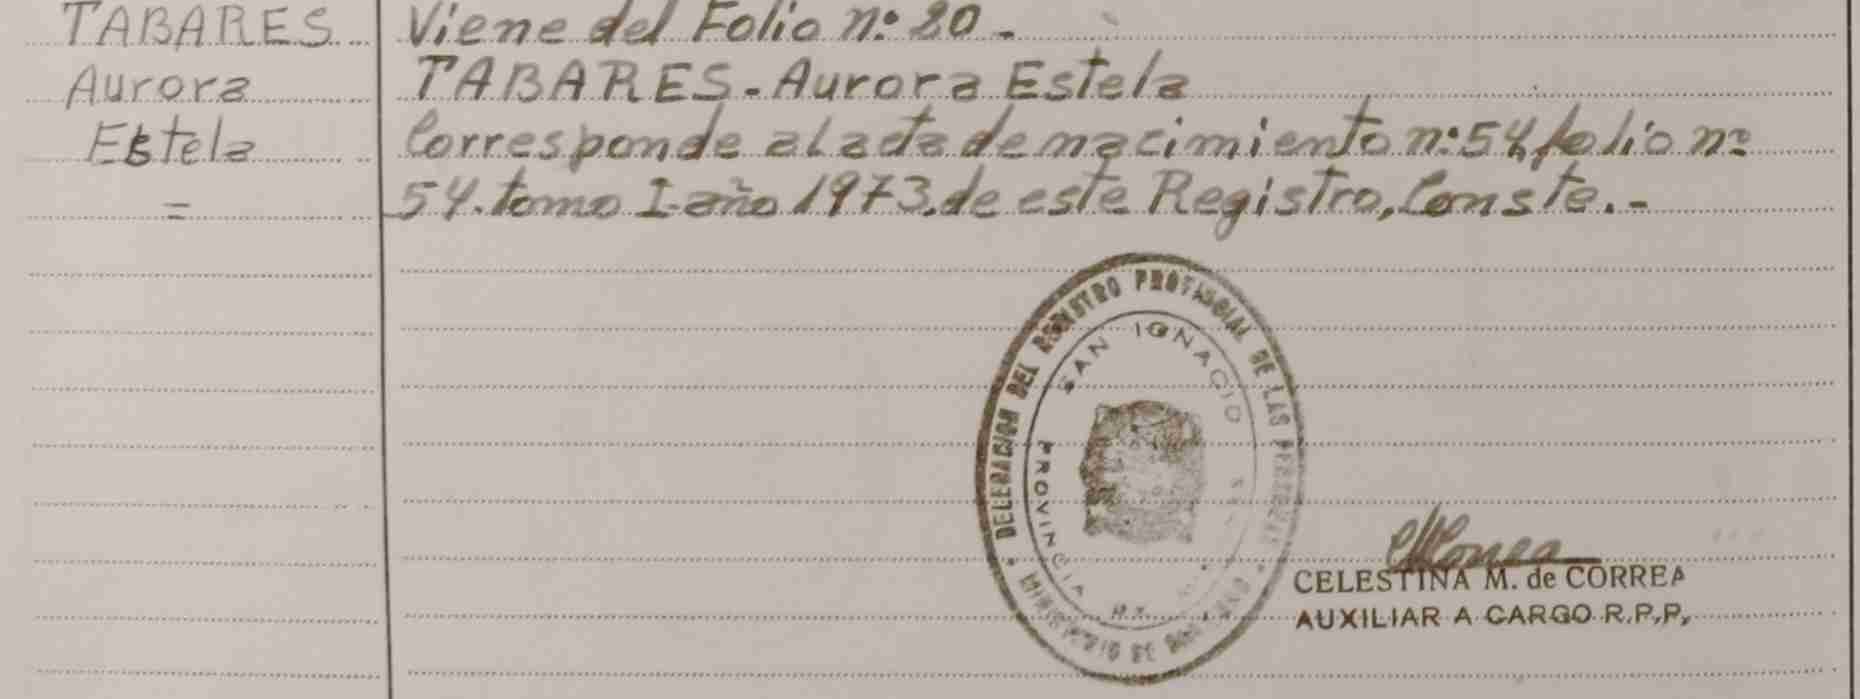 TABARES
Aurora
Estela
=
Viene del Folio n: 20 -
TABARES - Aurora Estela
Corresponde al acta de nacimiento n: 54, folio nº
54. tomo I- año 1973, de este Registro, Conste. -
DELEGACION DEL REGISTRO PROVINCIAL DE LAS PERSONAS
SAN IGNACIO
PROVINCIA
MINISTERIO DE
CELESTINA M. de CORREA
AUXILIAR A CARGO R.P.P,